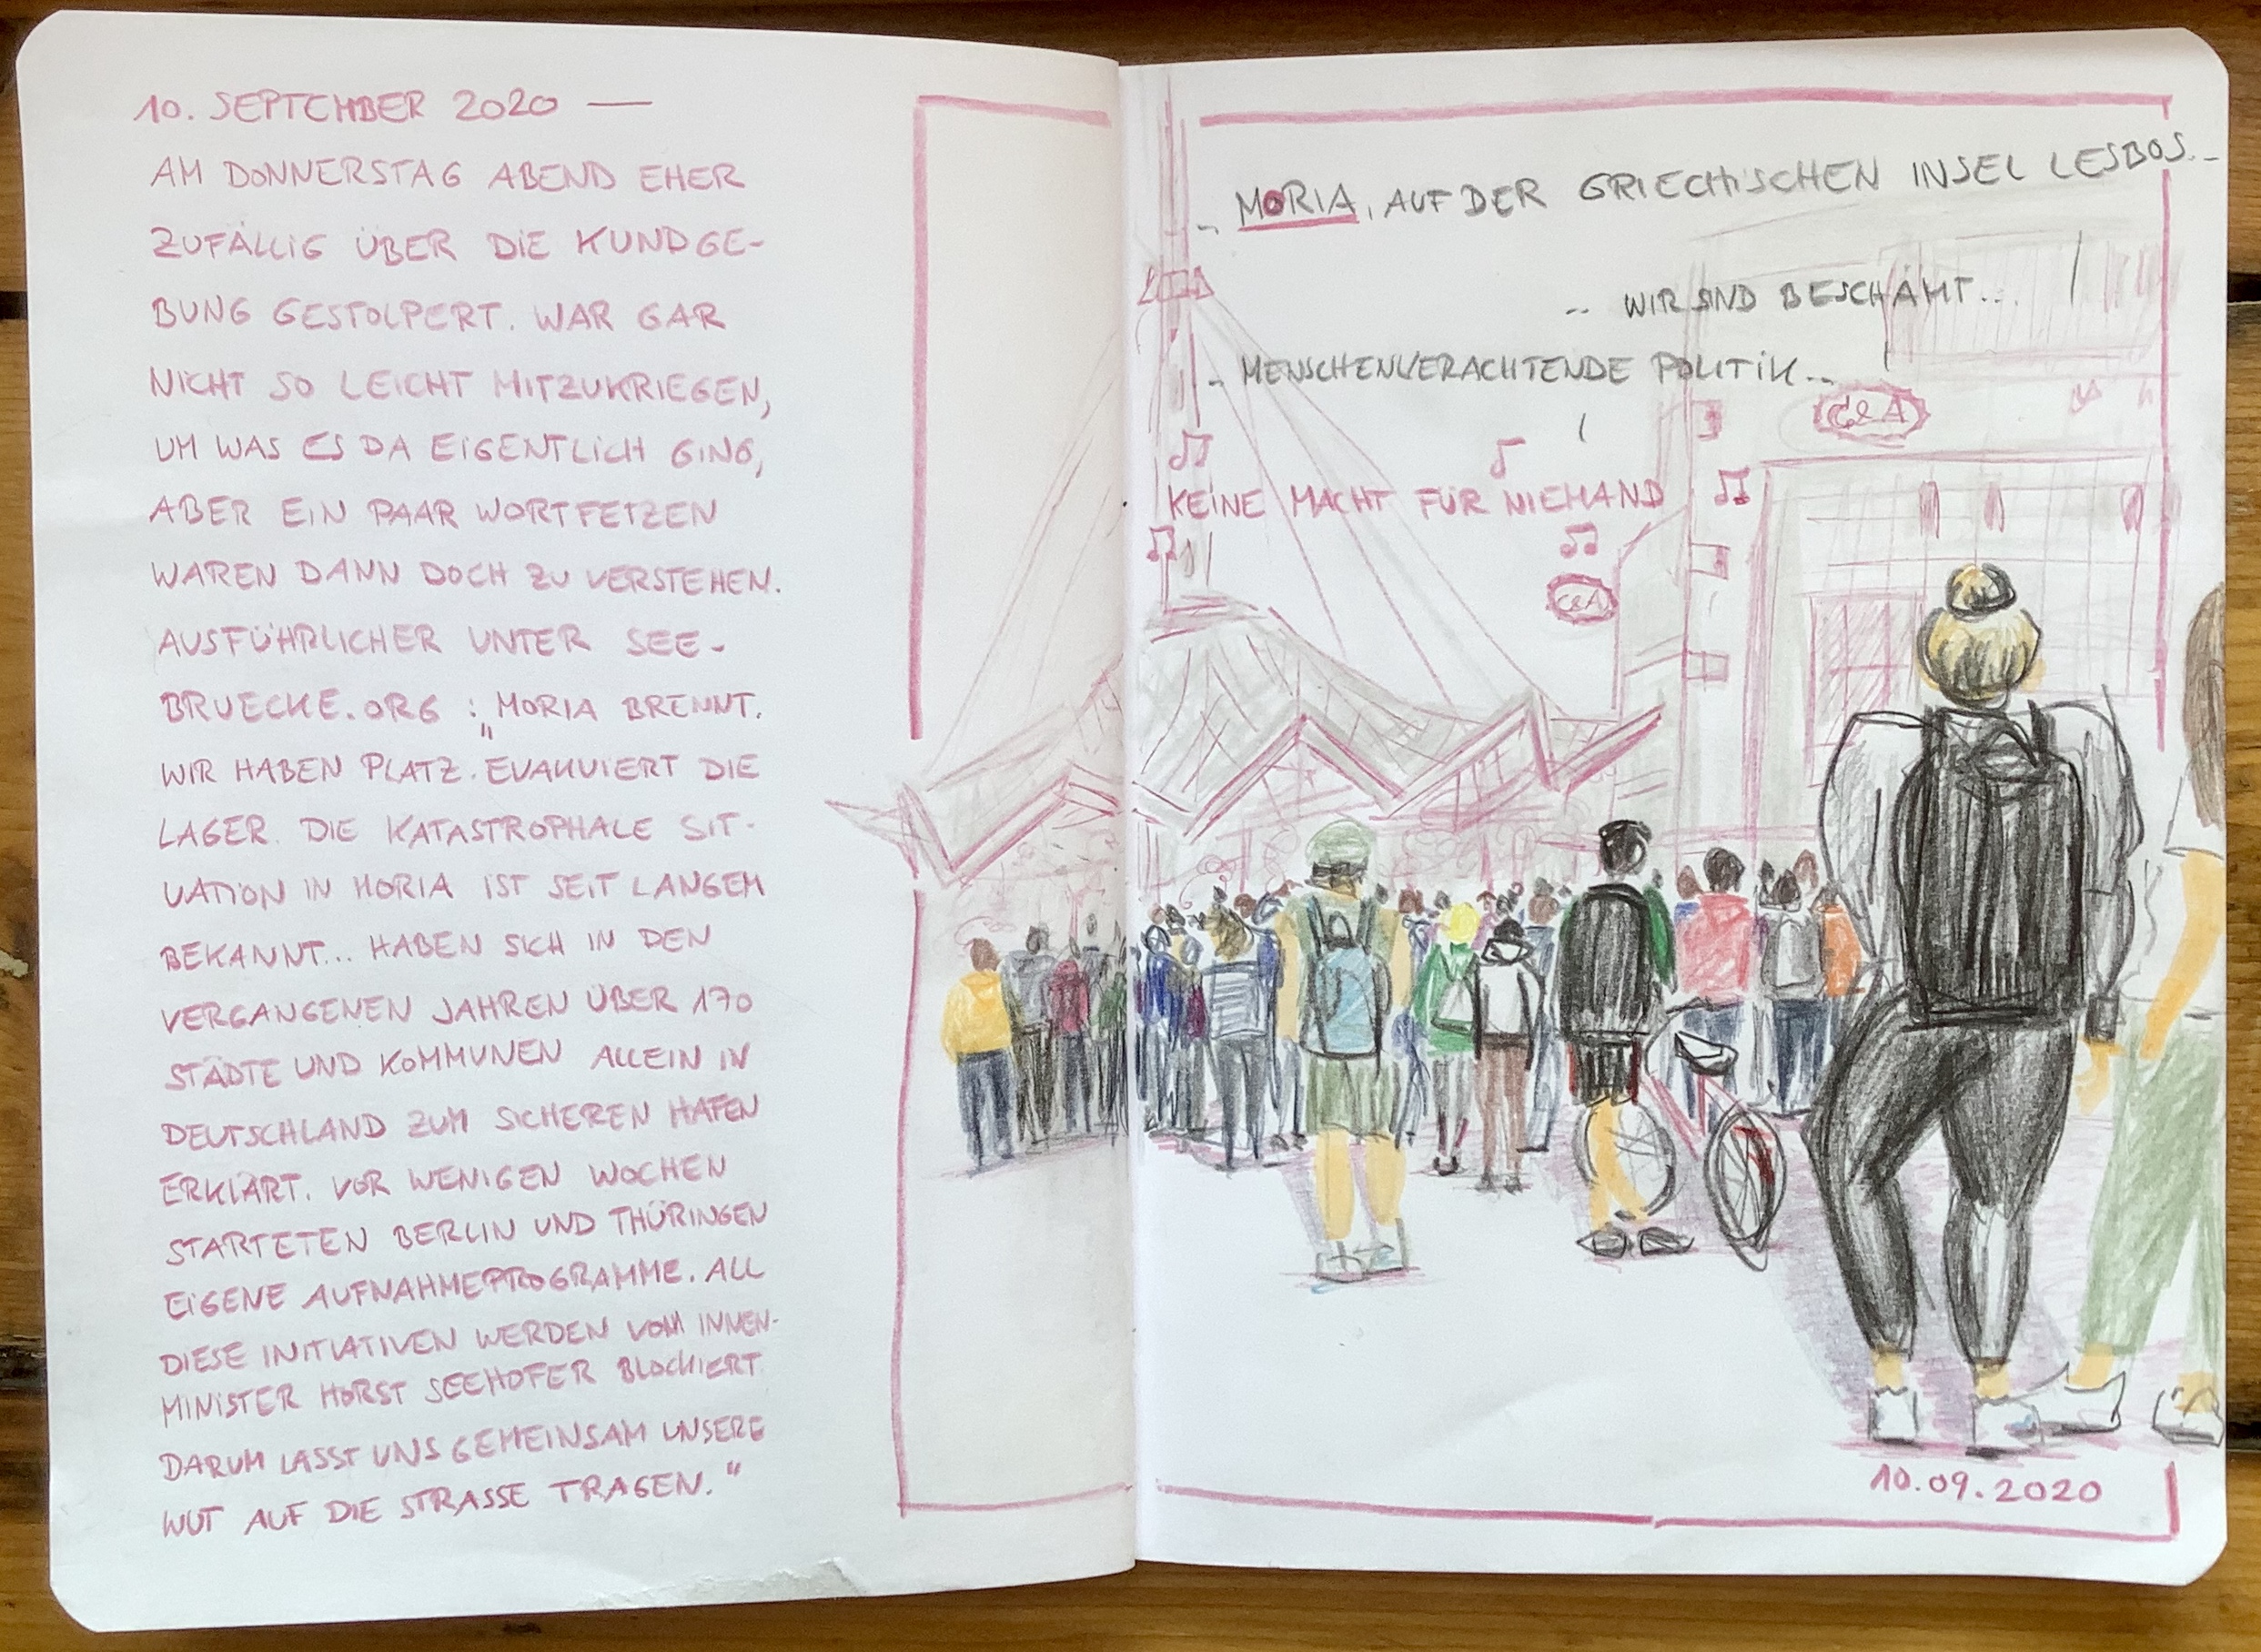 10. SEPTEMBER 2020 —
AM DONNERSTAG ABEND EHER
ZUFÄLLIG ÜBER DIE KUNDGE-
BUNG GESTOLPERT. WAR GAR
NICHT SO LEICHT MITZUKRIEGEN,
UM WAS ES DA EIGENTLICH GING,
ABER EIN PAAR WORTFETZEN
WAREN DANN DOCH ZU VERSTEHEN.
AUSFÜHRLICHER UNTER SEE-
BRUECKE.ORG : „MORIA BRENNT.
WIR HABEN PLATZ. EVAKUIERT DIE
LAGER. DIE KATASTROPHALE SIT-
UATION IN MORIA IST SEIT LANGEM
BEKANNT... HABEN SICH IN DEN
VERGANGENEN JAHREN ÜBER 170
STÄDTE UND KOMMUNEN ALLEIN IN
DEUTSCHLAND ZUM SICHEREN HAFEN
ERKLÄRT. VOR WENIGEN WOCHEN
STARTETEN BERLIN UND THÜRINGEN
EIGENE AUFNAHMEPROGRAMME. ALL
DIESE INITIATIVEN WERDEN VOM INNEN-
MINISTER HORST SEEHOFER BLOCKIERT.
DARUM LASST UNS GEMEINSAM UNSERE
WUT AUF DIE STRASSE TRAGEN."
.. MORIA, AUF DER GRIECHISCHEN INSEL LESBOS...
.. WIR SIND BESCHÄMT...
.. MENSCHENVERACHTENDE POLITIK...
C&A
KEINE MACHT FÜR NIEMAND
C&A
10.09.2020